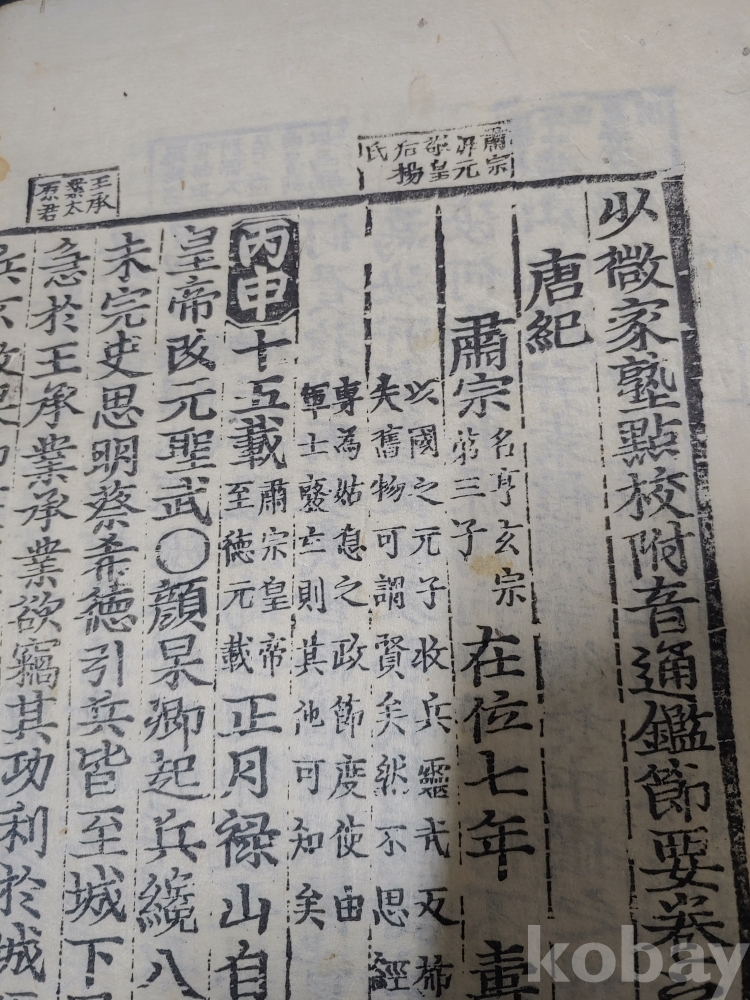 肅宗
元
皇
后楊
氏
王承
業太
原君
少微家塾點校附音通鑑節要卷
唐紀
肅宗 名亨玄宗
第三子 在位七年 壽
以國之元子收兵靈武反旆
失舊物可謂賢矣然不思經
專為姑息之政節度使由
軍士廢立則其他可知矣
丙申 十五載 肅宗皇帝
至德元載 正月祿山自
皇帝改元聖武〇顔杲卿起兵纔八
未完史思明蔡希德引兵皆至城下
急於王承業承業欲竊其功利於城
kobay